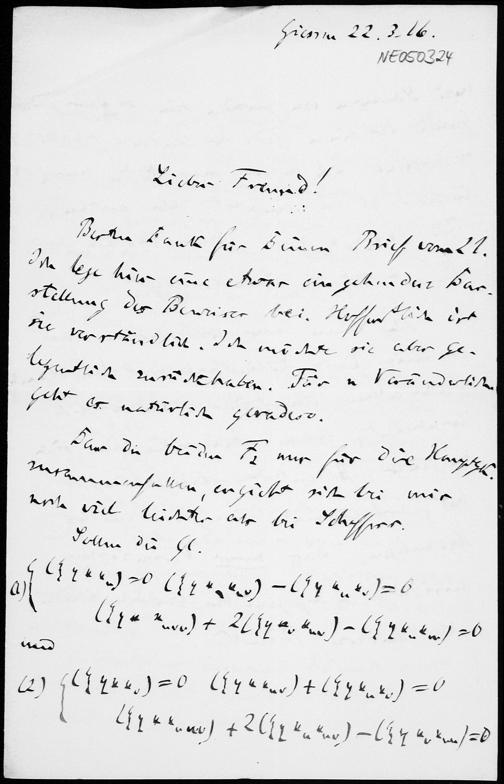 Giessen 22.3.16.
NE050324
Lieber Freund!
Besten Dank für Deinen Brief vom 21.
Ich lege hier eine etwas eingehendere Dar-
stellung des Beweises bei. Hoffentlich ist
sie verständlich. Ich möchte sie aber ge-
legentlich zurückhaben. Für n Veränderliche
geht es natürlich geradeso.
Dass die beiden F₂ nur für die
zusammenfallen, ergiebt sich bei mir
noch viel leichter als bei Scheffers.
Sollen die Gl.
(1) { (ξ y x x_u) = 0 (ξ y x_u x_uv) − (ξ y x_u x_v) = 0
+ 2(ξ y x_v x_uv) − = 0
und
(2) { (ξ y x x_v) = 0 (ξ y x x_uv) + (ξ y x_u x_v) = 0
+ 2(ξ y x_u x_uv) − = 0